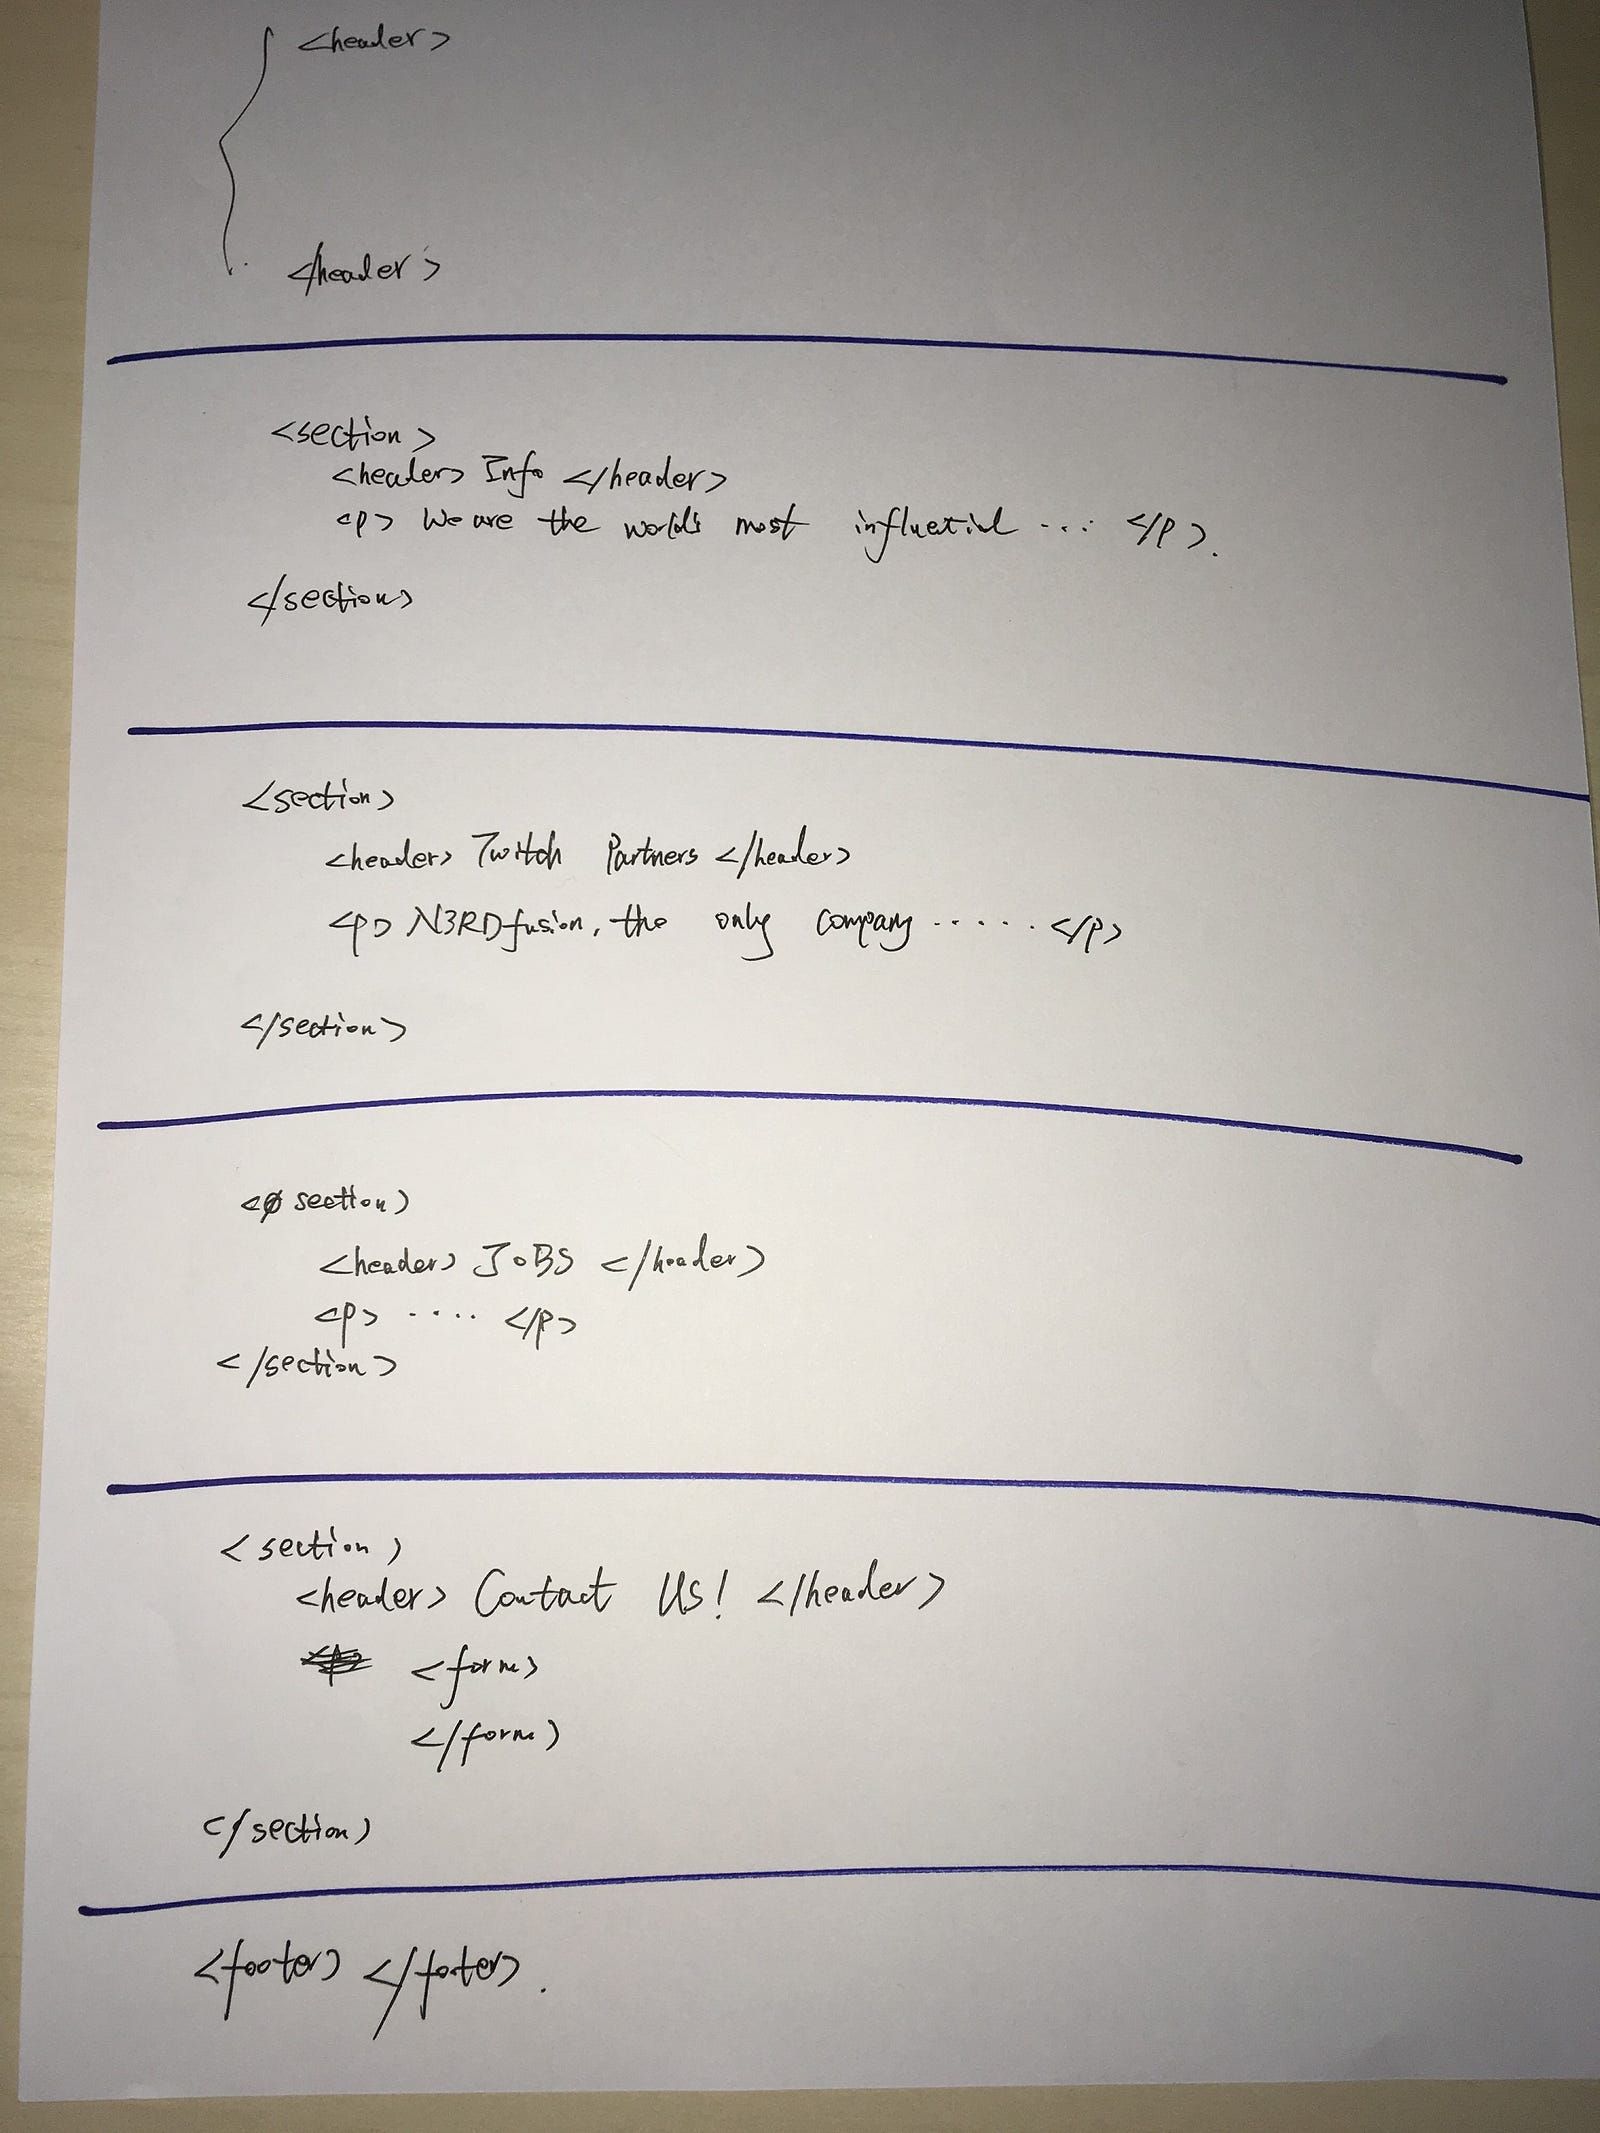 <header>
</header>
<section>
<header> Info </header>
<p> We are the world's most influetial ... </p>.
</section>
<section>
<header> Twitch Partners </header>
<p> N3RDfusion, the only company ..... </p>
</section>
< section>
<header> JoBS </header>
<p> .... </p>
</section>
<section>
<header> Contact Us! </header>
<form>
</form>
</section>
<footer> </foter>.